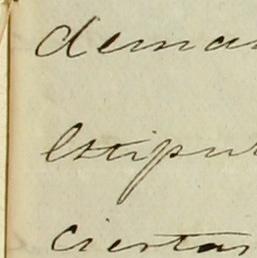 deman
estipu
ciertas